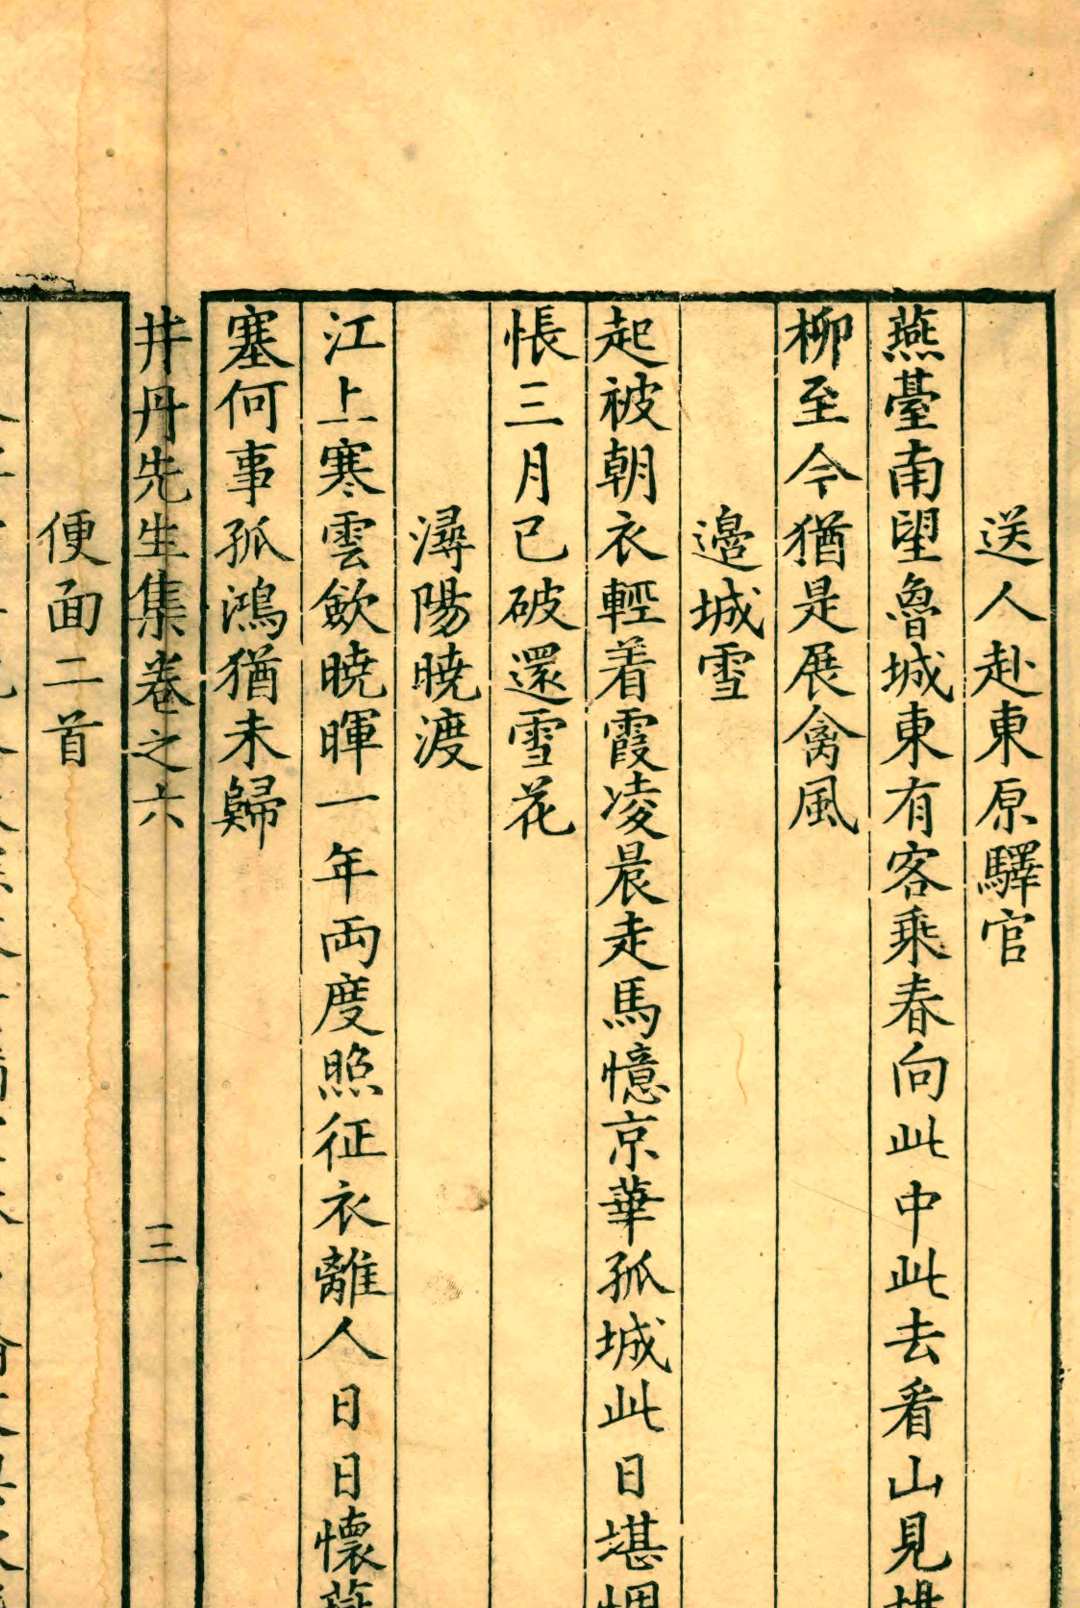 送人赴東原驛官
燕臺南望魯城東有客乘春向此中此去看山見
柳至今猶是展禽風
邉城雪
起被朝衣輕着霞凌晨走馬憶京華孤城此日堪
悵三月已破還雪花
潯陽曉渡
江上寒雲歛曉暉一年両度照征衣離人日日懷
塞何事孤鴻猶未歸
井丹先生集卷之六
三
便面二首